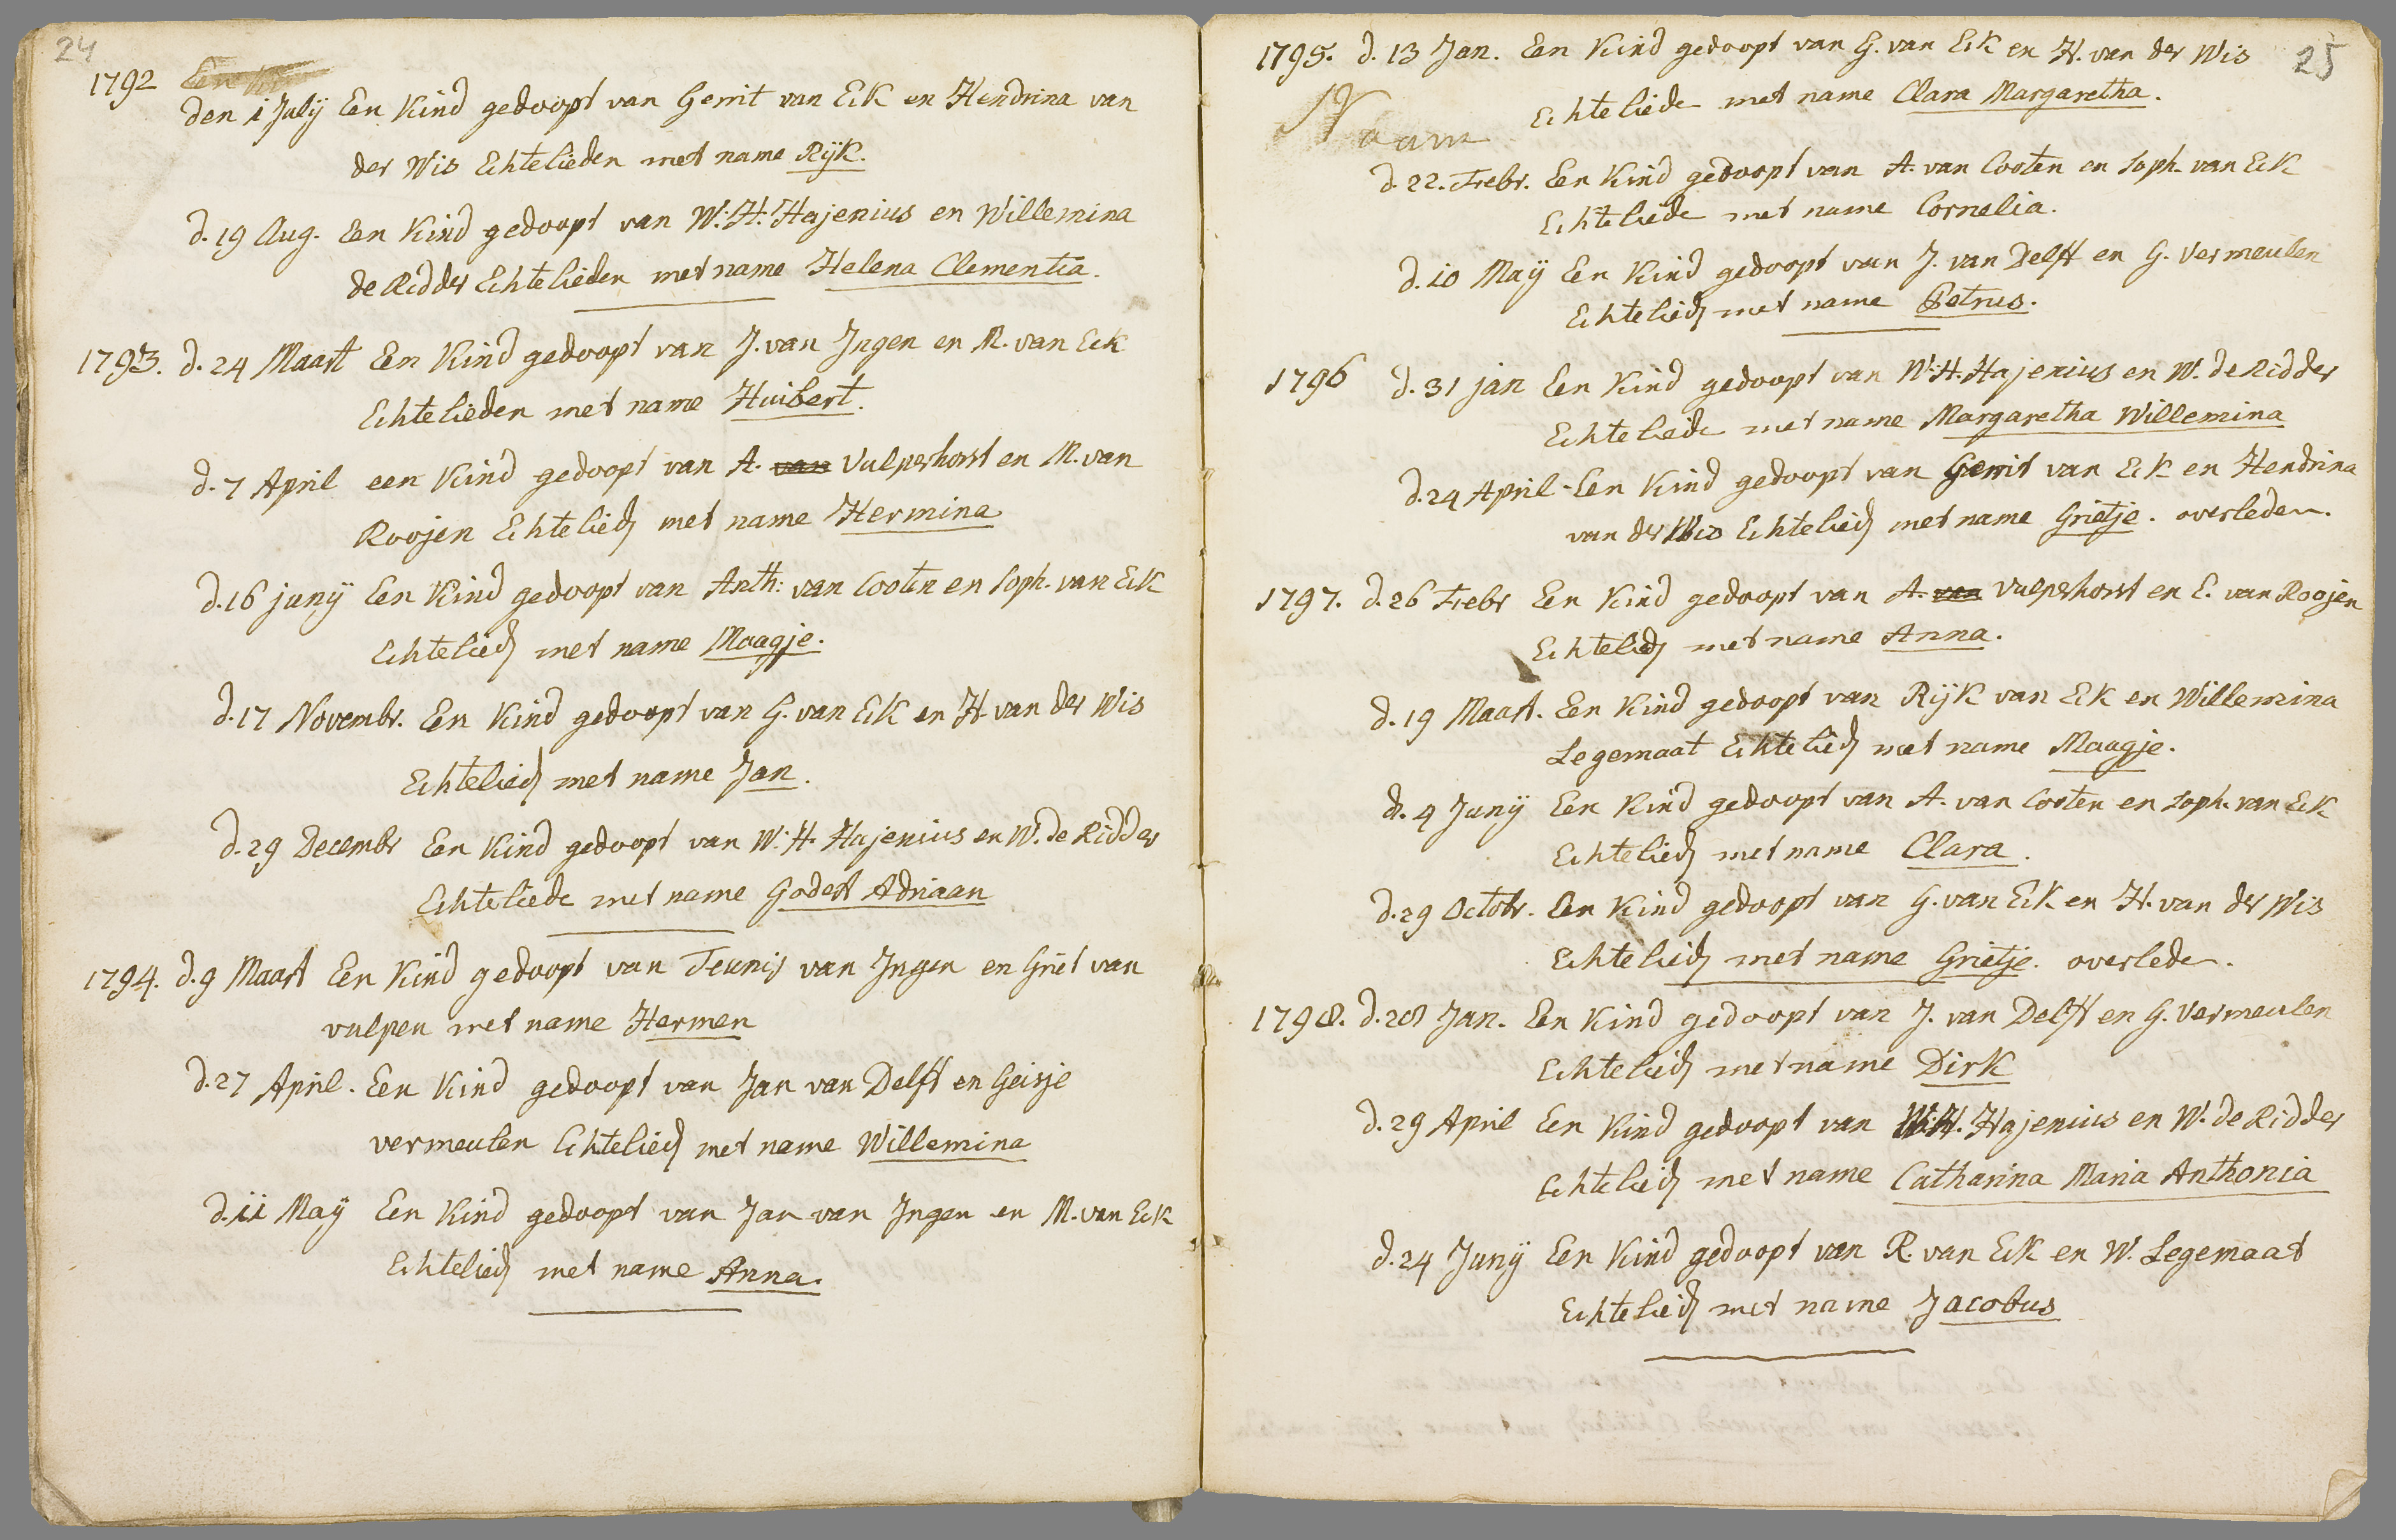 24
1792 Een Kin
den 1 July Een Kind gedoopt van Gerrit van Eck en Hendrina van
der Wis Echtelieden met name Ryk.
d. 19 Aug. Een Kind gedoopt van W: H: Hajenius en Willemina
de Ridder Echtelieden met name Helena Clementia.
1793. d. 24 Maart Een Kind gedoopt van J. van Ingen en M. van Eck
Echtelieden met name Huibert.
d. 7 April een Kind gedoopt van A. van Vulperhorst en M. van
Roojen Echtelied met name Hermina
d. 16 juny Een Kind gedoopt van Anth: van Cooten en Soph. van Eck
Echtelied met name Maagje.
d. 17 Novembr. Een Kind gedoopt van G. van Eck en H. van der Wis
Echtelied met name Jan.
d. 29 Decembr Een Kind gedoopt van W: H. Hajenius en W. de Ridder
Echteliede met name Godert Adriaan
1794. d. 9 Maart Een Kind gedoopt van Teunis van Ingen en Griet van
vulpen met name Hermen
d. 27 April. Een Kind gedoopt van Jan van Delft en Geisje
vermeulen Echtelied met name Willemina
d. 11 May Een Kind gedoopt van Jan van Ingen en M. van Eck
Echtelied met name Anna.
25
1795. d. 13 Jan. Een Kind gedoopt van G. van Eck en H. van der Wis
Echteliede met name Clara Margaretha.
Naam
d. 22. Febr. Een Kind gedoopt van A. van Cooten en Soph. van Eck
Echteliede met name Cornelia.
d. 10 May Een Kind gedoopt van J. van Delft en G. Vermeulen
Echtelied met name Petrus.
1796 d. 31 jan Een Kind gedoopt van W: H. Hajenius en W. de Ridder
Echteliede met name Margaretha Willemina
d. 24 April Een Kind gedoopt van Gerrit van Eck en Hendrina
van der Wis Echtelied met name Grietje. overleden.
1797. d. 26 Febr Een Kind gedoopt van A. van Vulperhorst en E. van Roojen
Echtelied met name Anna.
d. 19 Maart. Een Kind gedoopt van Ryk van Eck en Willemina
Legemaat Echtelied met name Maagje.
d. 4 Juny Een Kind gedoopt van A. van Cooten en Soph. van Eck
Echtelied met name Clara.
d. 29 Octobr. Een Kind gedoopt van G. van Eck en H. van der Wis
Echtelied met name Grietje. overlede.
1798. d. 28 Jan. Een Kind gedoopt van J. van Delft en G. Vermeulen
Echtelied met name Dirk
d. 29 April Een Kind gedoopt van W: H. Hajenius en W. de Ridder
Echtelied met name Catharina Maria Anthonia
d. 24 Juny Een Kind gedoopt van R. van Eck en W. Legemaat
Echtelied met name Jacobus